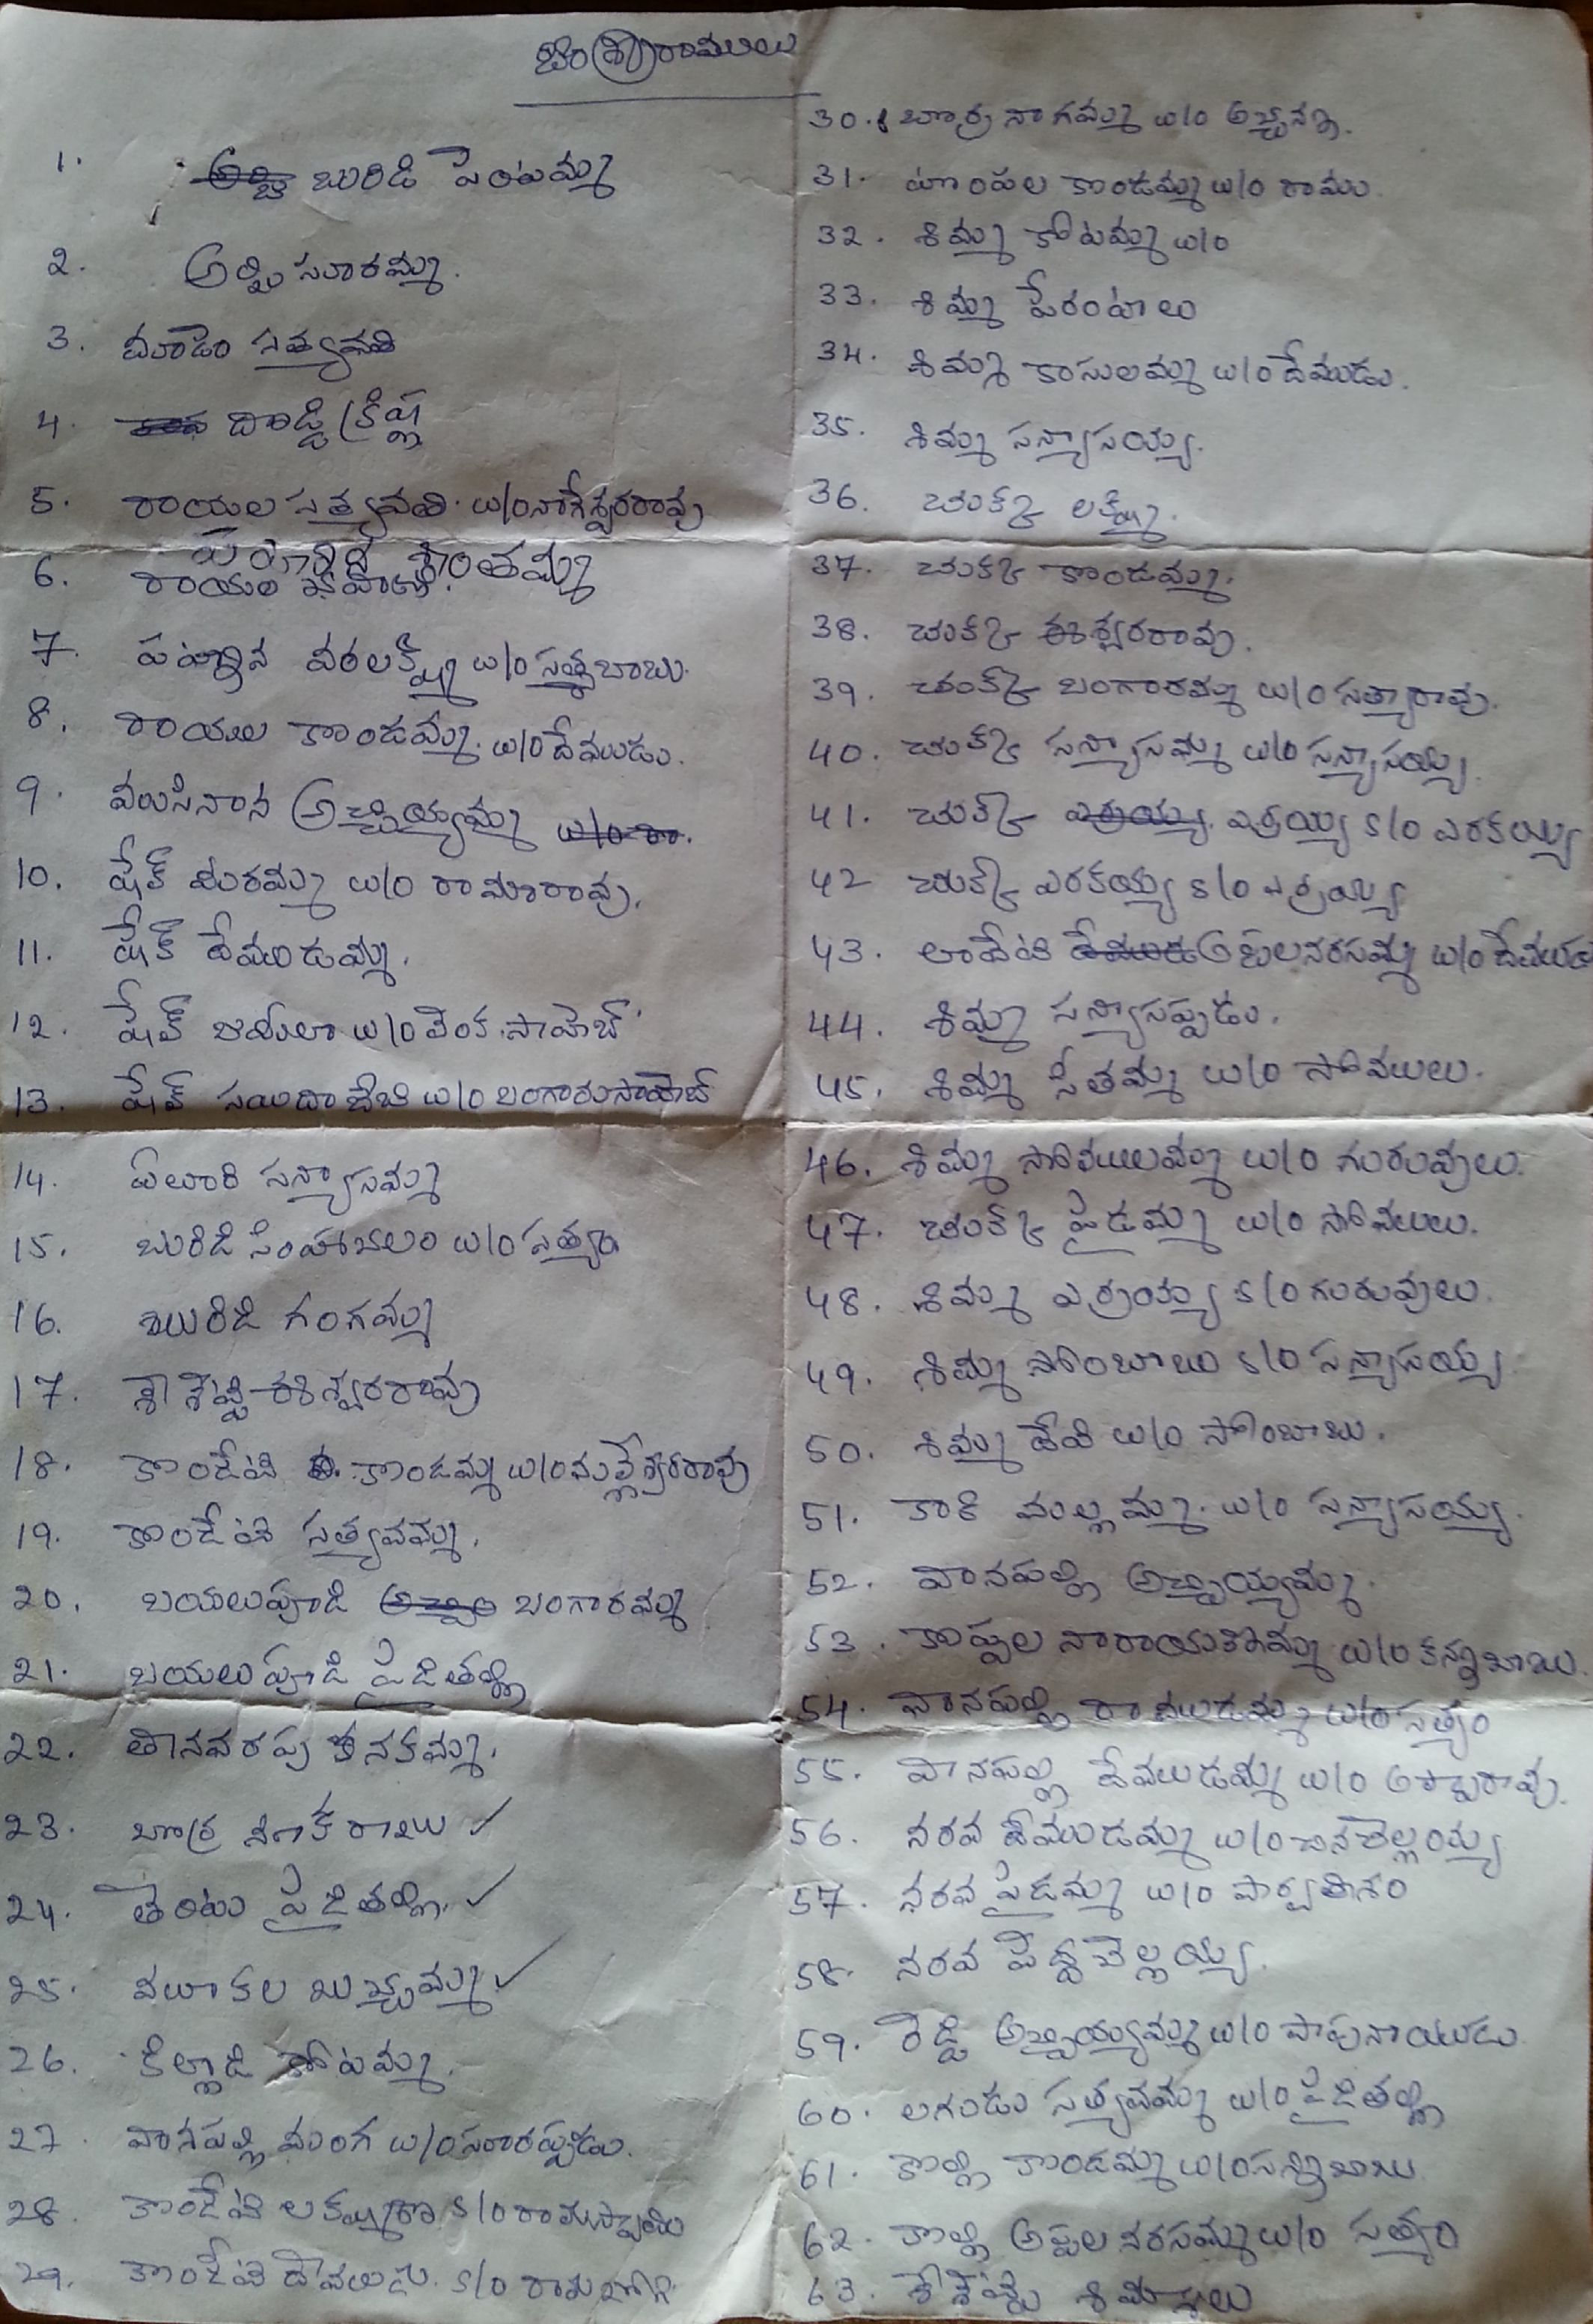 1. బురిడి పెంటమ్మ
2. అర్జి సూరమ్మ.
3. దూడెం సత్యవతి
4. దొడ్డి క్రిష్ణ
5. రాయల సత్యవతి. w/o నాగేశ్వరరావు
శాంతమ్మ
6. రాయల
7. వరలక్ష్మి w/o సత్యబాబు.
8. రాయల కొండమ్మ. w/o దేముడు.
9. వలుసినాన అచ్చియ్యమ్మ
10. షేక్ సూరమ్మ w/o రామారావు.
11. షేక్ దేముడమ్మ.
12. షేక్ జమీలా w/o పెంక సాహెబ్
13. షేక్ సయిదా బేబి w/o బంగారుసాహెబ్
14. ఏలూరి సన్యాసమ్మ
15. బురిడి సింహాచలం w/o సత్యం
16. బురిడి గంగమ్మ
17. శెశెట్టి ఈశ్వరరావు
18. కాండేటి కొండమ్మ w/o మల్లేశ్వరరావు
19. కాండేటి సత్యవమ్మ.
20. బయలుపూడి బంగారమ్మ
21. బయలుపూడి పైడితల్లి
22. తానవరపు కనకమ్మ.
23. బొర్ర నూకరాజు ✓
24. తెంటు పైడితల్లి. ✓
25. వటూకల బుచ్చమ్మ ✓
26. కిల్లాడి కోటమ్మ.
27. వానపల్లి మంగ w/o సూరప్పుడు.
28. కాండేటి లక్ష్మణ s/o రామస్వామి
29. కాండేటి దేవుడు. s/o
30. బొర్ర నాగమ్మ w/o అచ్చన్న.
31. పొంపల కొండమ్మ w/o రాము.
32. శిమ్మ కోటమ్మ w/o
33. శిమ్మ పేరంటాలు
34. శిమ్మ కాసులమ్మ w/o దేముడు.
35. శిమ్మ సన్యాసయ్య.
36. చుక్క లక్ష్మి.
37. చుక్క కొండమ్మ.
38. చుక్క ఈశ్వరరావు.
39. చుక్క బంగారమ్మ w/o సత్యారావు.
40. చుక్క సన్యాసమ్మ w/o సన్యాసయ్య
41. చుక్క ఎర్రయ్య s/o ఎరకయ్య
42 చుక్క ఎరకయ్య s/o ఎర్రయ్య
43. అప్పలనరసమ్మ w/o దేముడు
44. శిమ్మ సన్యాసప్పుడు.
45. శిమ్మ సీతమ్మ w/o సోములు.
46. శిమ్మ సోములమ్మ w/o గురువులు.
47. చుక్క పైడమ్మ w/o సోములు.
48. శిమ్మ ఎర్రయ్య s/o గురువులు.
49. శిమ్మ సోంబాబు s/o సన్యాసయ్య
50. శిమ్మ దేవి w/o సోంబాబు.
51. కాకి మల్లమ్మ. w/o సన్యాసయ్య.
52. వానపల్లి అచ్చియ్యమ్మ.
53. కొప్పల నారాయణమ్మ w/o కన్నబాబు.
54. వానపల్లి రాముడమ్మ w/o సత్యం
55. వానపల్లి దేముడమ్మ w/o అప్పారావు.
56. నరవ దేముడమ్మ w/o చినచెల్లయ్య
57. నరవ పైడమ్మ w/o పార్వతీశం
58. నరవ పెద్దచెల్లయ్య.
59. రెడ్డి అచ్చియ్యమ్మ w/o పాపునాయుడు
60. లగుడు సత్యవమ్మ w/o పైడితల్లి
61. కొల్లి కొండమ్మ w/o సన్నిబాబు
62. కొల్లి అప్పలనరసమ్మ w/o సత్యం
63. శెశెట్టి